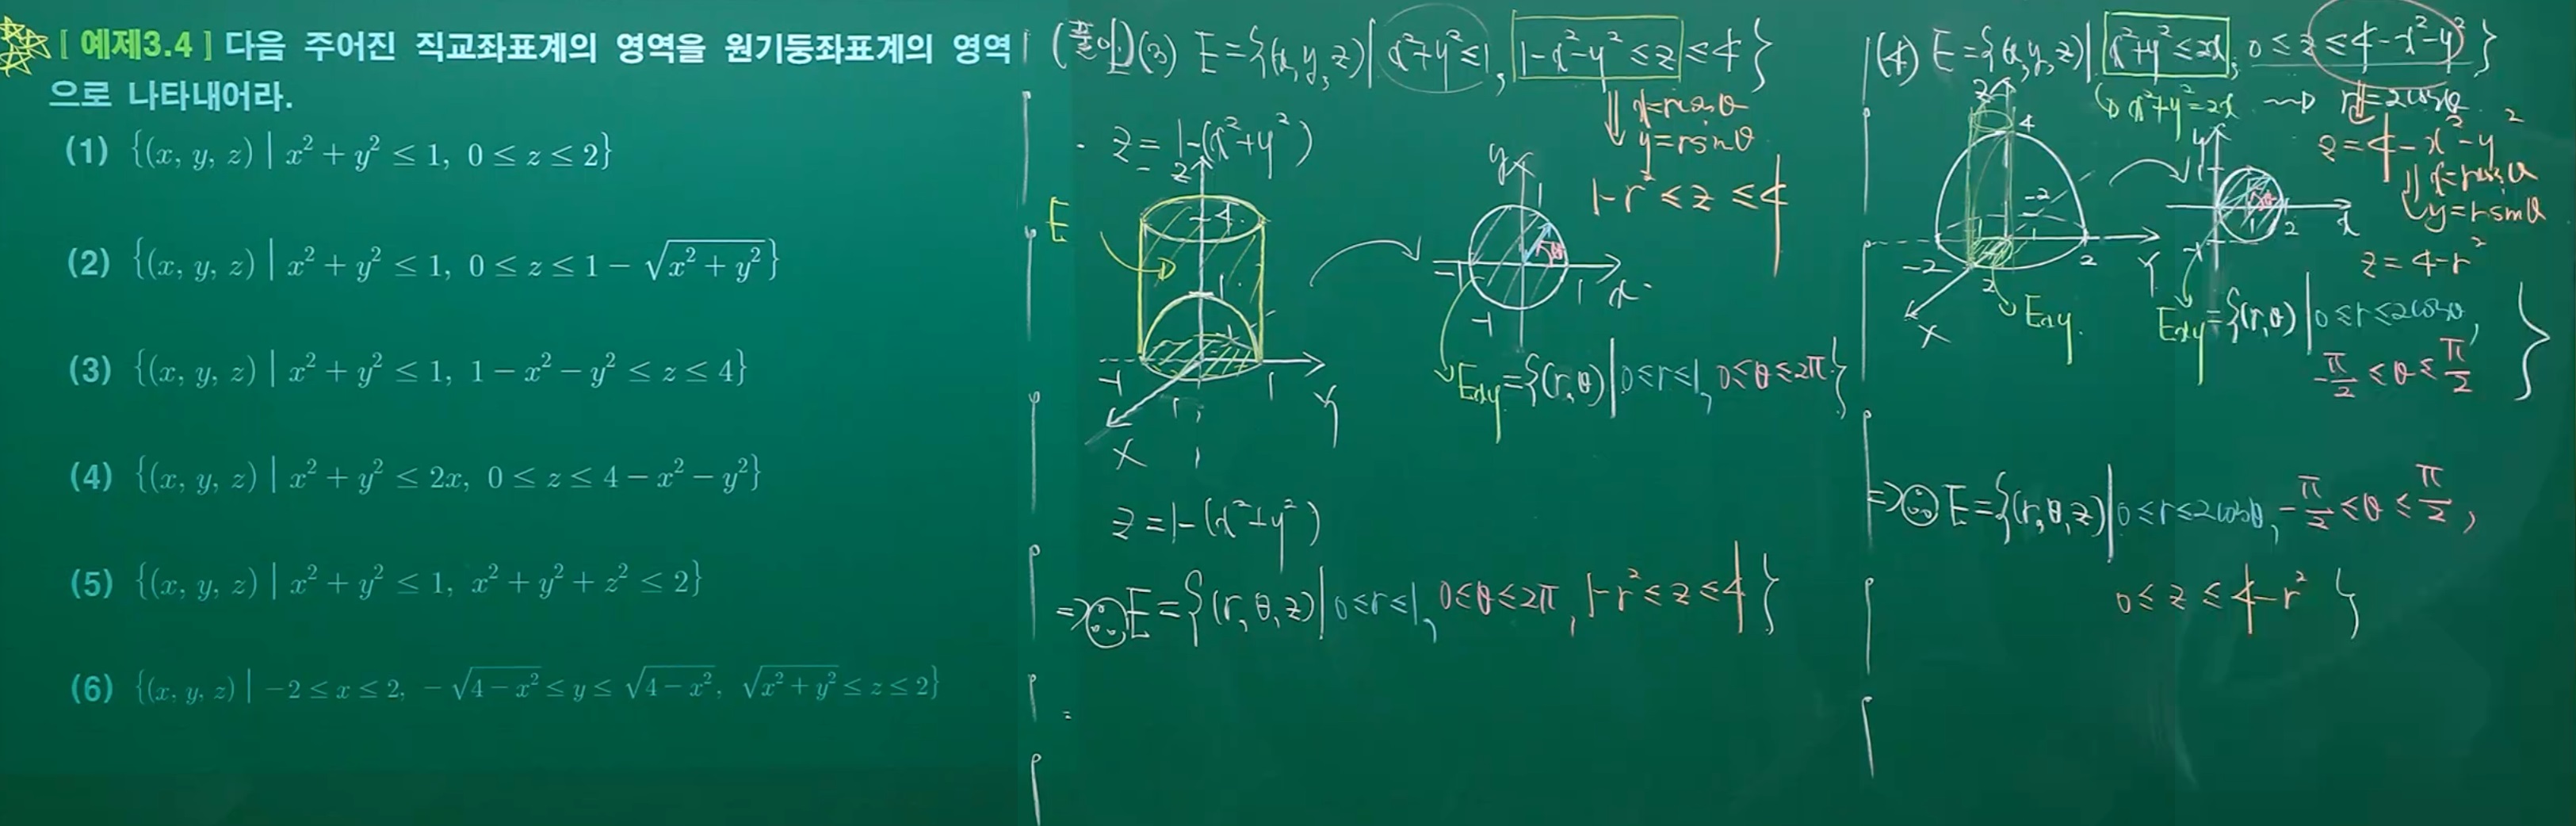 [ 예제3.4 ] 다음 주어진 직교좌표계의 영역을 원기둥좌표계의 영역
으로 나타내어라.
(1) {(x, y, z) | x² + y² ≤ 1, 0 ≤ z ≤ 2}
(2) {(x, y, z) | x² + y² ≤ 1, 0 ≤ z ≤ 1 − √(x² + y²)}
(3) {(x, y, z) | x² + y² ≤ 1, 1 − x² − y² ≤ z ≤ 4}
(4) {(x, y, z) | x² + y² ≤ 2x, 0 ≤ z ≤ 4 − x² − y²}
(5) {(x, y, z) | x² + y² ≤ 1, x² + y² + z² ≤ 2}
(6) {(x, y, z) | −2 ≤ x ≤ 2, −√(4 − x²) ≤ y ≤ √(4 − x²), √(x² + y²) ≤ z ≤ 2}
(풀이) (3) E={(x,y,z)| x²+y²≤1, 1-x²-y²≤z≤4}
x=rcosθ
y=rsinθ
z=1-(x²+y²)
1-r²≤z≤4
z
4
E
1
-1
1
X
Y
y
1
θ
-1
1
x
-1
Exy={(r,θ)|0≤r≤1, 0≤θ≤2π}
z=1-(x²+y²)
=> E={(r,θ,z)|0≤r≤1, 0≤θ≤2π, 1-r²≤z≤4}
(4) E={(x,y,z)| x²+y²≤2x, 0≤z≤4-x²-y²}
x²+y²=2x → r=2cosθ
z=4-x²-y²
x=rcosθ
y=rsinθ
z=4-r²
z
4
-2
-2
2
2
Y
X
Exy
y
1
θ
2
x
-1
Exy={(r,θ)|0≤r≤2cosθ,
-π/2≤θ≤π/2}
=> E={(r,θ,z)|0≤r≤2cosθ, -π/2≤θ≤π/2,
0≤z≤4-r²}